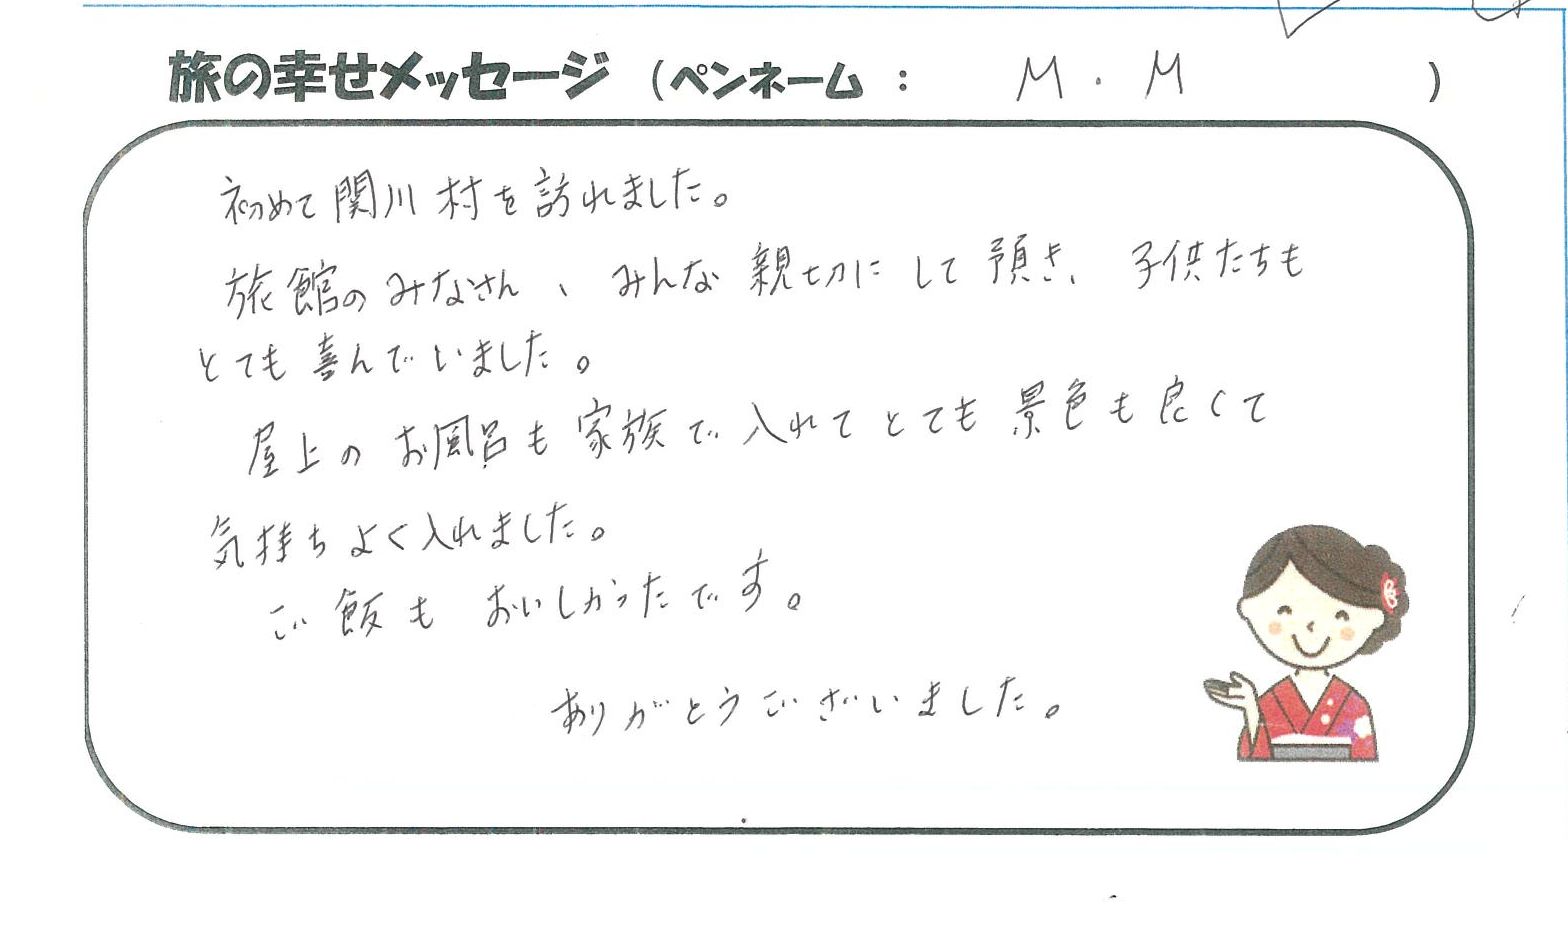 旅の幸せメッセージ (ペンネーム : M.M )
初めて関川村を訪れました。
旅館のみなさん、みんな親切にして頂き、子供たちも
とても喜んでいました。
屋上のお風呂も家族で入れてとても景色も良くて
気持ちよく入れました。
ご飯もおいしかったです。
ありがとうございました。